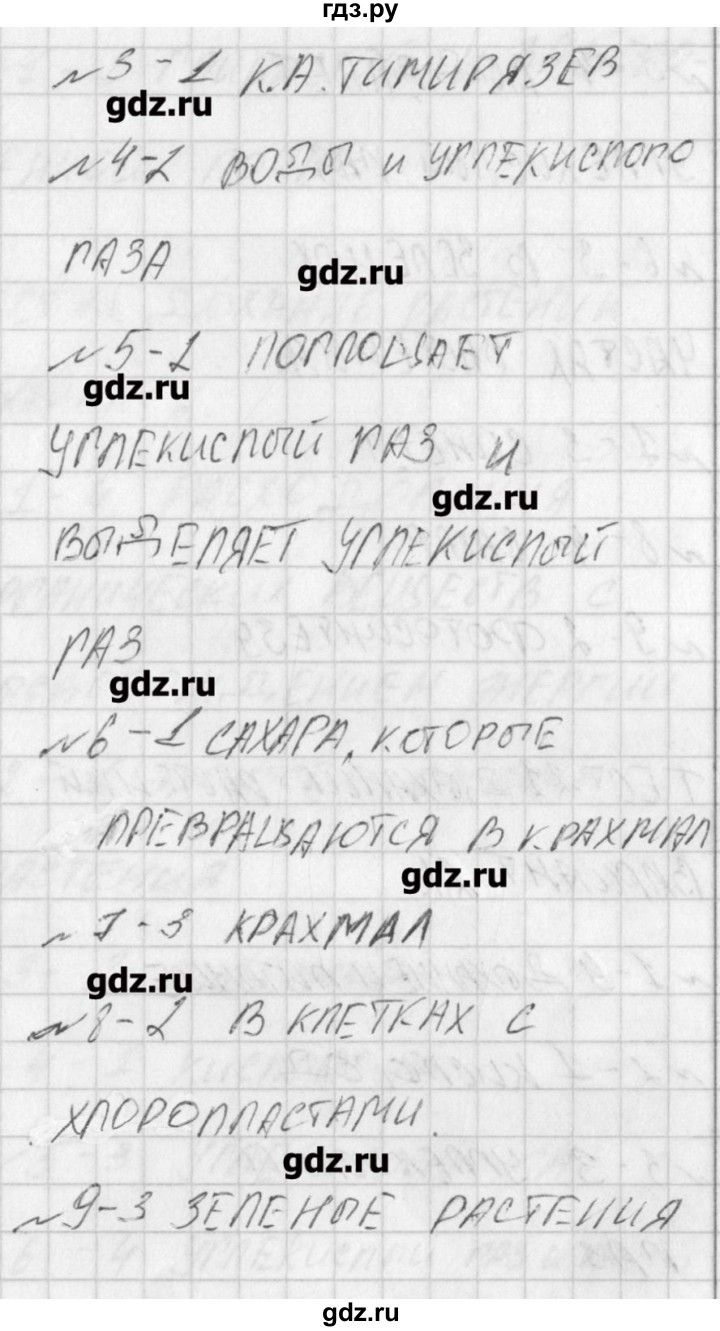 гдз.ру
№3-1 К.А. ТИМИРЯЗЕВ
gdz.ru
№4-2 ВОДЫ И УГЛЕКИСЛОГО
ГАЗА
gdz.ru
№5-1 ПОГЛОЩАЕТ
gdz.ru
УГЛЕКИСЛЫЙ ГАЗ И
gdz.ru
ВЫДЕЛЯЕТ УГЛЕКИСЛЫЙ
ГАЗ
gdz.ru
№6-1 САХАРА, КОТОРЫЕ
ПРЕВРАЩАЮТСЯ В КРАХМАЛ
gdz.ru
№7-3 КРАХМАЛ
gdz.ru
№8-2 В КЛЕТКАХ С
ХЛОРОПЛАСТАМИ.
gdz.ru
№9-3 ЗЕЛЕНЫЕ РАСТЕНИЯ
gdz.ru